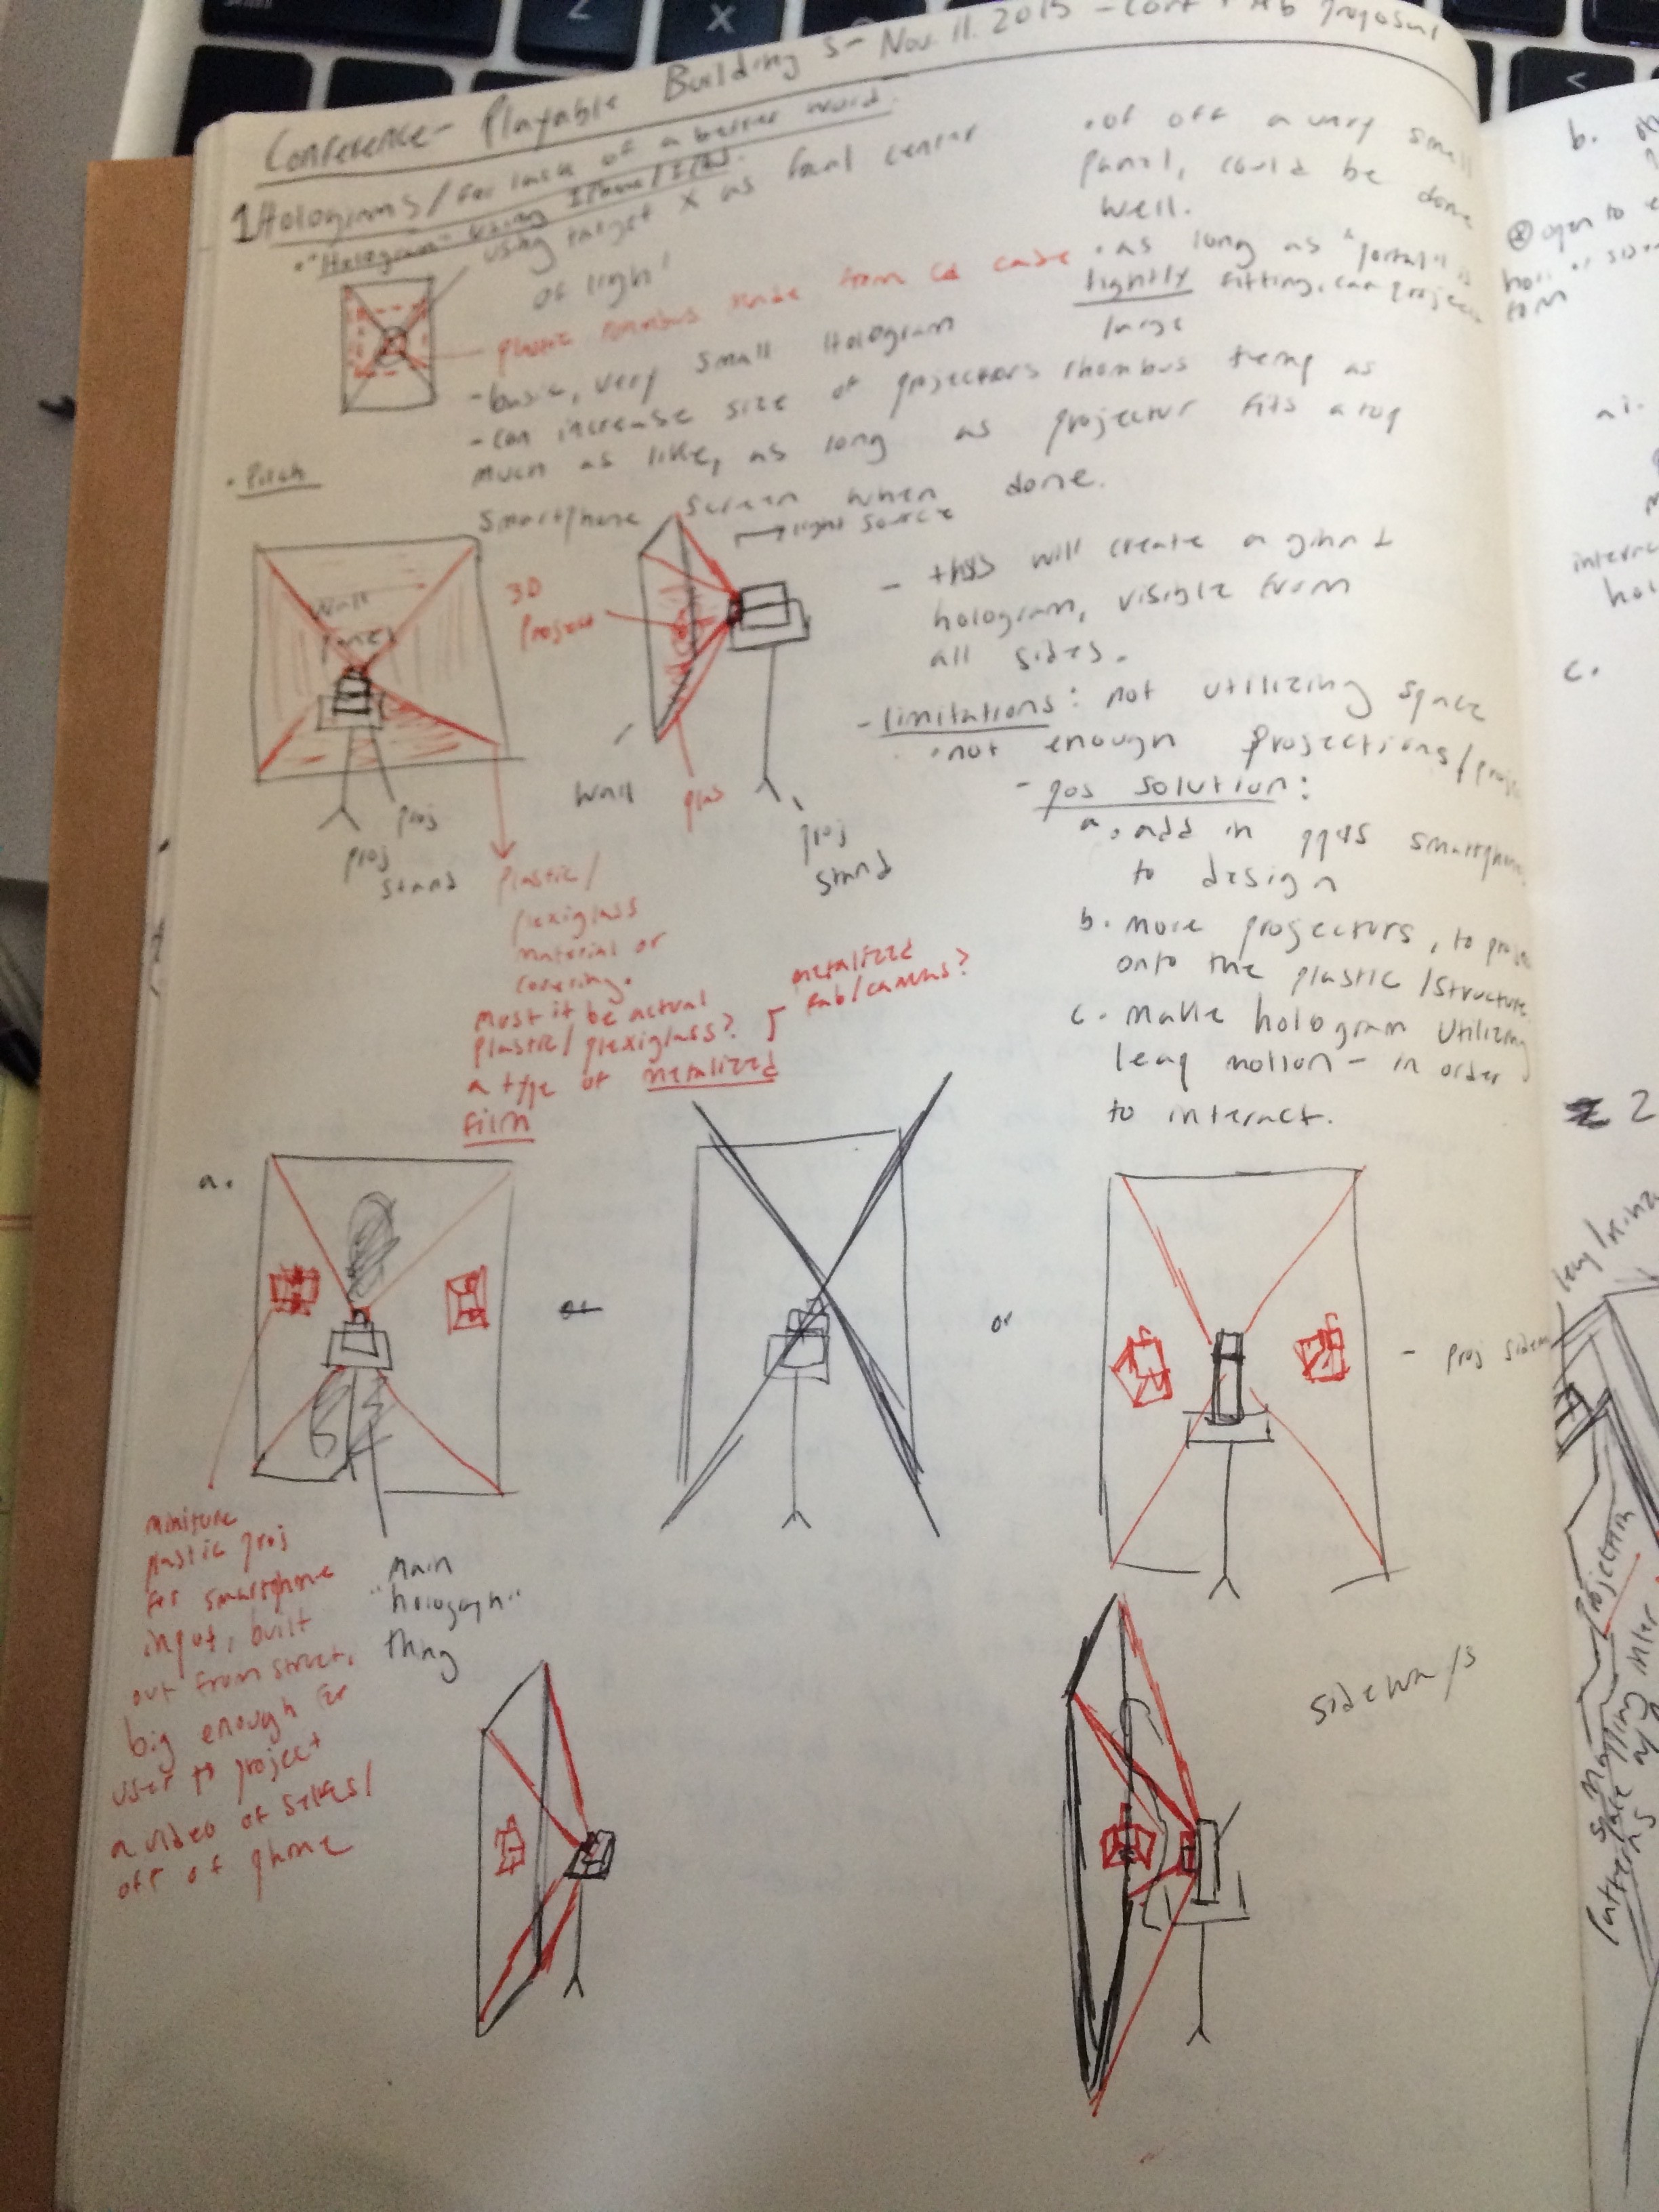 Conference - Playable Buildings - Nov. 11. 2015 - Conf + Proposal
1 Holograms / for lack of a better word.
• "Hologram" using IPhone/
using target X as focal center
of light
plastic rhombus made from Cd case
- basic, very small Hologram
- can increase size of projectors rhombus thing as
much as like, as long as projector fits atop
smartphone screen when done.
• of off a very small
panel, could be done
well.
• as long as "portal" is
tightly fitting, can project
large
• Pitch
Wall
Panel
proj
proj
stand
3D
Project
light source
Wall
plas
proj
stand
- this will create a giant
hologram, visible from
all sides.
- limitations: not utilizing space
• not enough projections/
- pos solution:
a. add in smartphone
to design
b. more projectors, to
onto the plastic /structure
c. Make hologram utilizing
leap motion - in order
to interact.
plastic/
plexiglass
material or
covering.
Must it be actual
plastic/ plexiglass?
a type of metalized
film
metalized
fab/canvas?
a.
or
or
- proj sidew
miniture
plastic proj
for smartphone
input, built
out from struct,
big enough for
user to project
a video of selves/
off of phone
Main
"holograph"
thing
sideways
b.
open to
c.
2
leap/kin
projection
Mapping
Space
Patterns